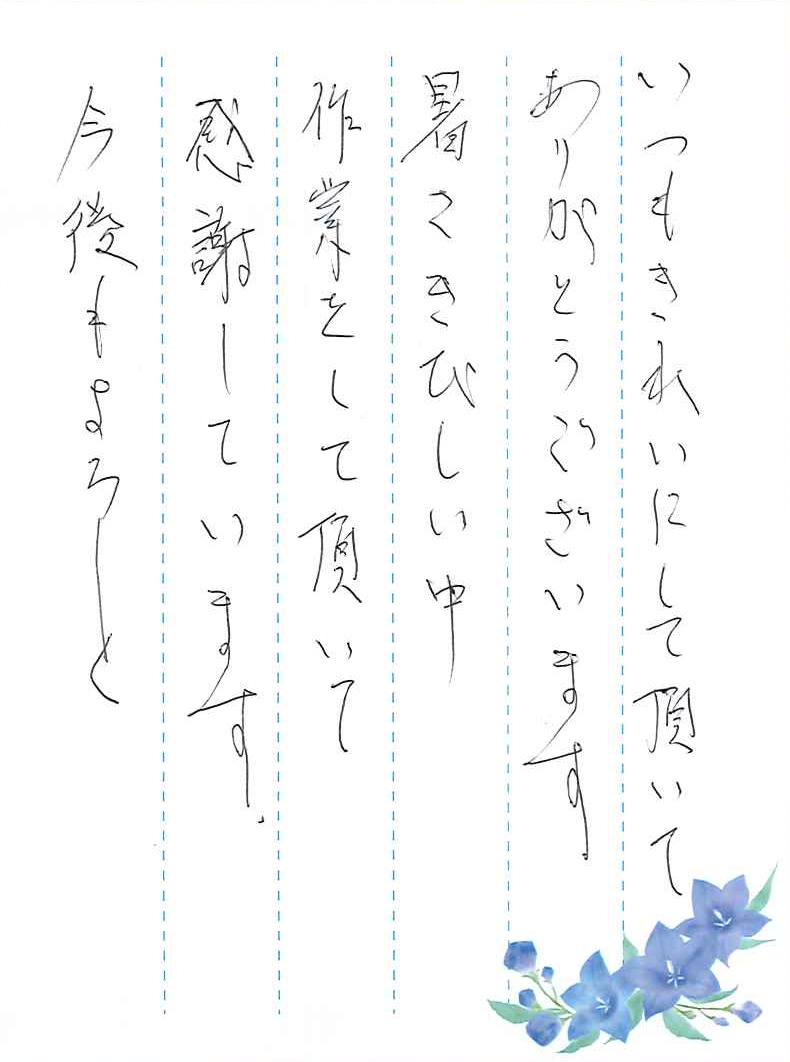 いつもきれいにして頂いて
ありがとうございます
暑さきびしい中
作業をして頂いて
感謝しています.
今後もよろしく